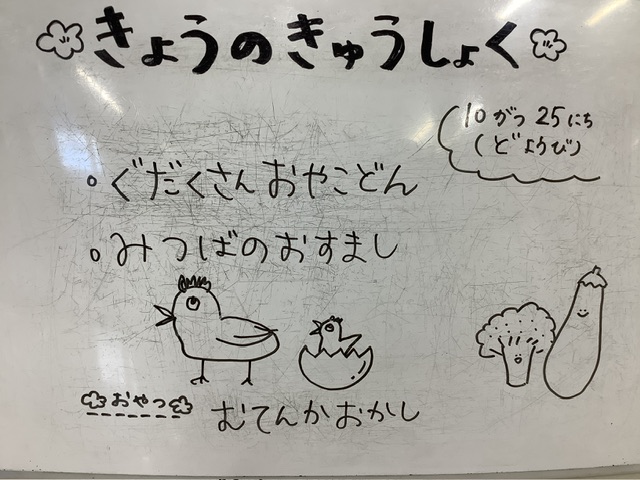 きょうのきゅうしょく
10がつ25にち
(どようび)
。ぐだくさんおやこどん
。みつばのおすまし
おやつ
むてんかおかし